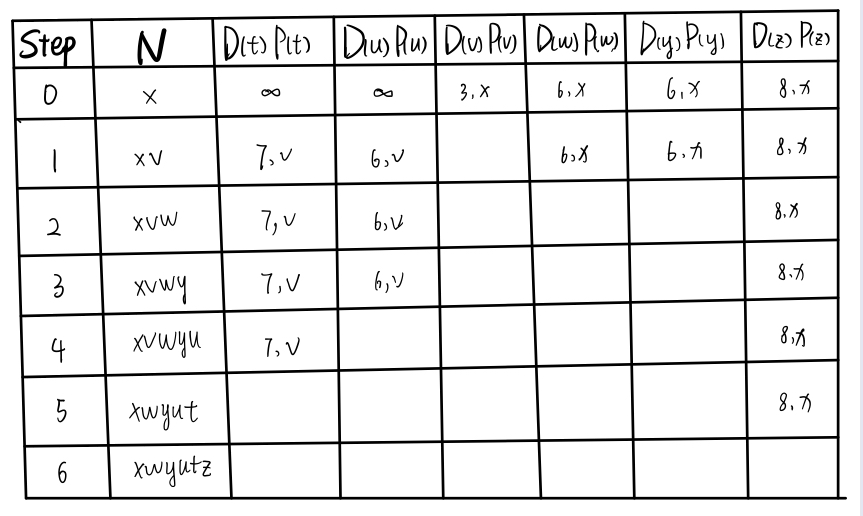 Step N D(t) P(t) D(u) P(u) D(v) P(v) D(w) P(w) D(y) P(y) D(z) P(z)
0 x ∞ ∞ 3, x 6, x 6, x 8, x
1 xv 7, v 6, v 6, x 6, x 8, x
2 xvw 7, v 6, v 8, x
3 xvwy 7, v 6, v 8, x
4 xvwyu 7, v 8, x
5 xwyut 8, x
6 xwyutz